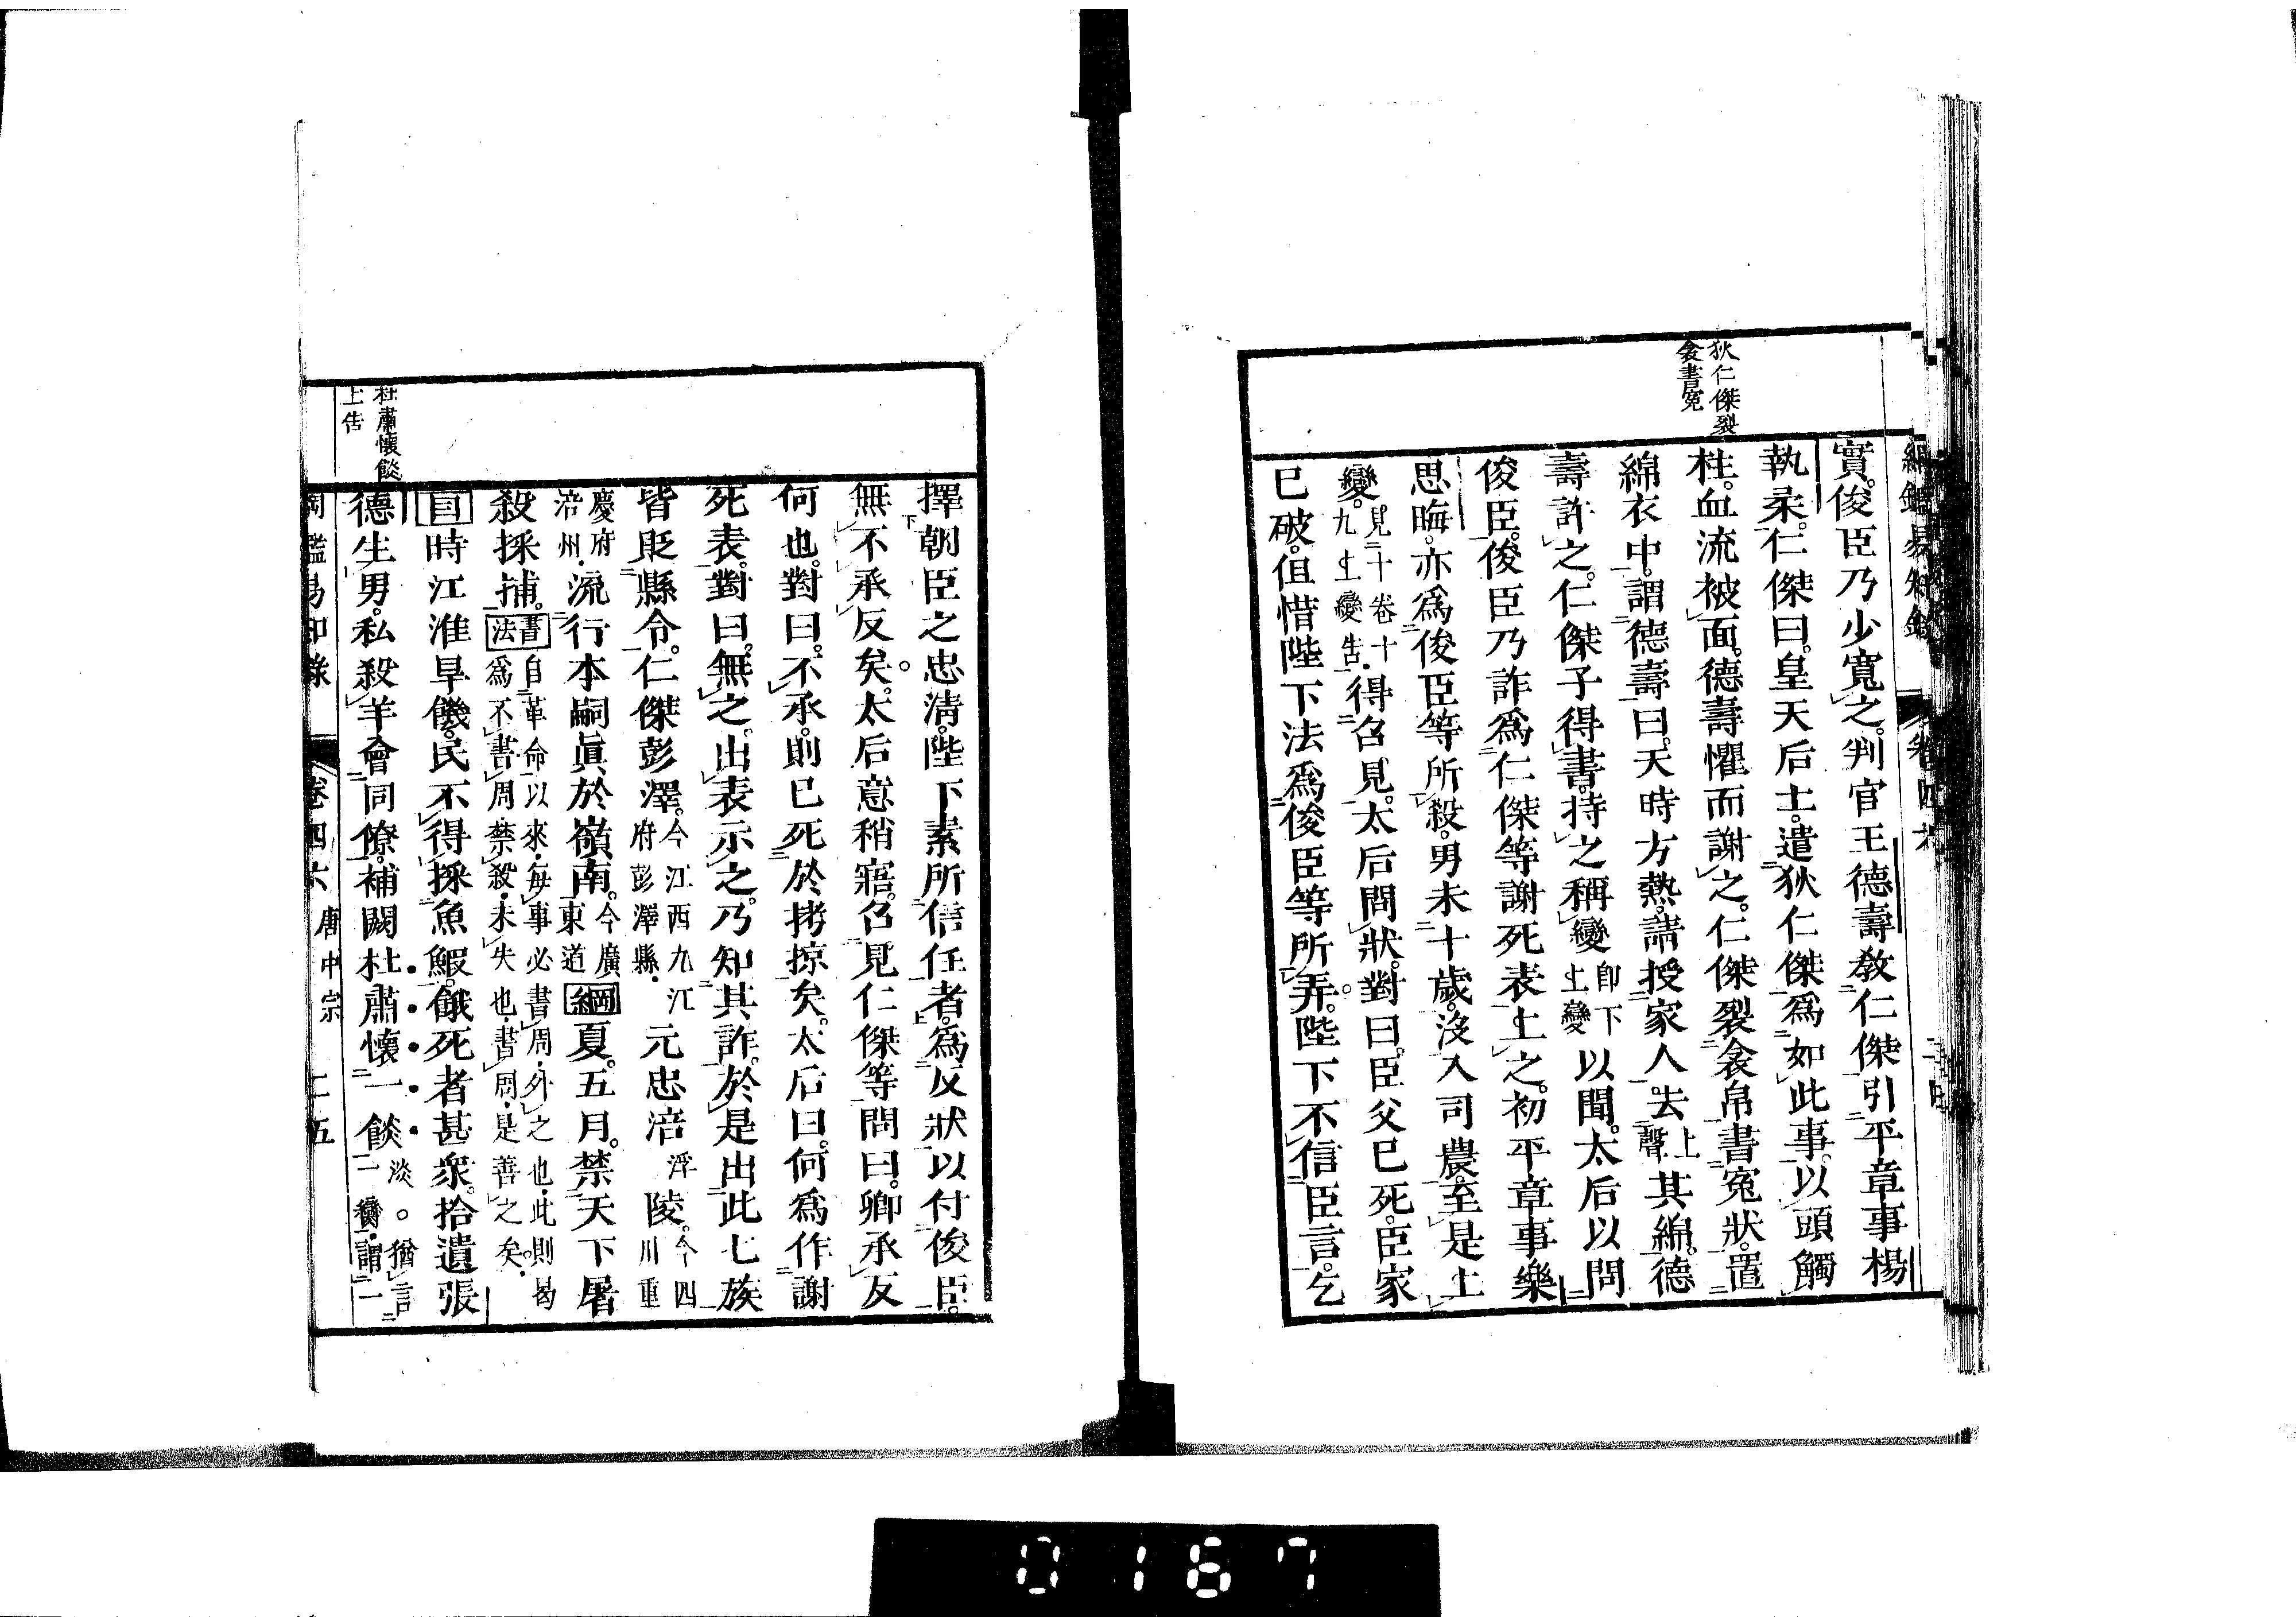 綱鑑易知錄 卷四六
狄仁傑裂
衾書冤
實。俊臣乃少寬之。判官王德壽敎仁傑引平章事楊
執柔。仁傑曰。皇天后土。遣狄仁傑爲如此事。以頭觸
柱。血流被面。德壽懼而謝之。仁傑裂衾帛書冤狀。置
綿衣中。謂德壽曰。天時方熱。請授家人。去上聲其綿。德
壽許之。仁傑子得書。持之稱變卽下上變以聞。太后以問
俊臣。俊臣乃詐爲仁傑等謝死表上之。初平章事樂
思晦。亦爲俊臣等所殺。男未十歲。沒入司農。至是上
變。見十卷十九上變告。得召見。太后問狀。對曰。臣父已死。臣家
已破。但惜陛下法爲俊臣等所弄。陛下不信臣言。乞
擇朝臣之忠淸。陛下素所信任者。爲反狀以付俊臣。
無不承反矣。太后意稍寤。召見仁傑等問曰。卿承反
何也。對曰。不承。則已死於拷掠矣。太后曰。何爲作謝
死表。對曰。無之。出表示之。乃知其詐。於是出此七族
皆貶縣令。仁傑彭澤。今江西九江府彭澤縣。元忠涪浮陵。今四川重
慶府涪州。流行本嗣眞於嶺南。今廣東道綱夏。五月。禁天下屠
殺採捕。書法自革命以來。每事必書周。外之也。此則曷爲不書周。禁殺。未失也。書周。是善之矣。
目時江淮旱饑。民不得採魚鰕。餓死者甚衆。拾遺張
德生男。私殺羊會同僚。補闕杜肅懷一餤淡。猶言一臠。謂一
杜肅懷餤
上告
綱鑑易知錄 卷四六 唐中宗 二五
0167